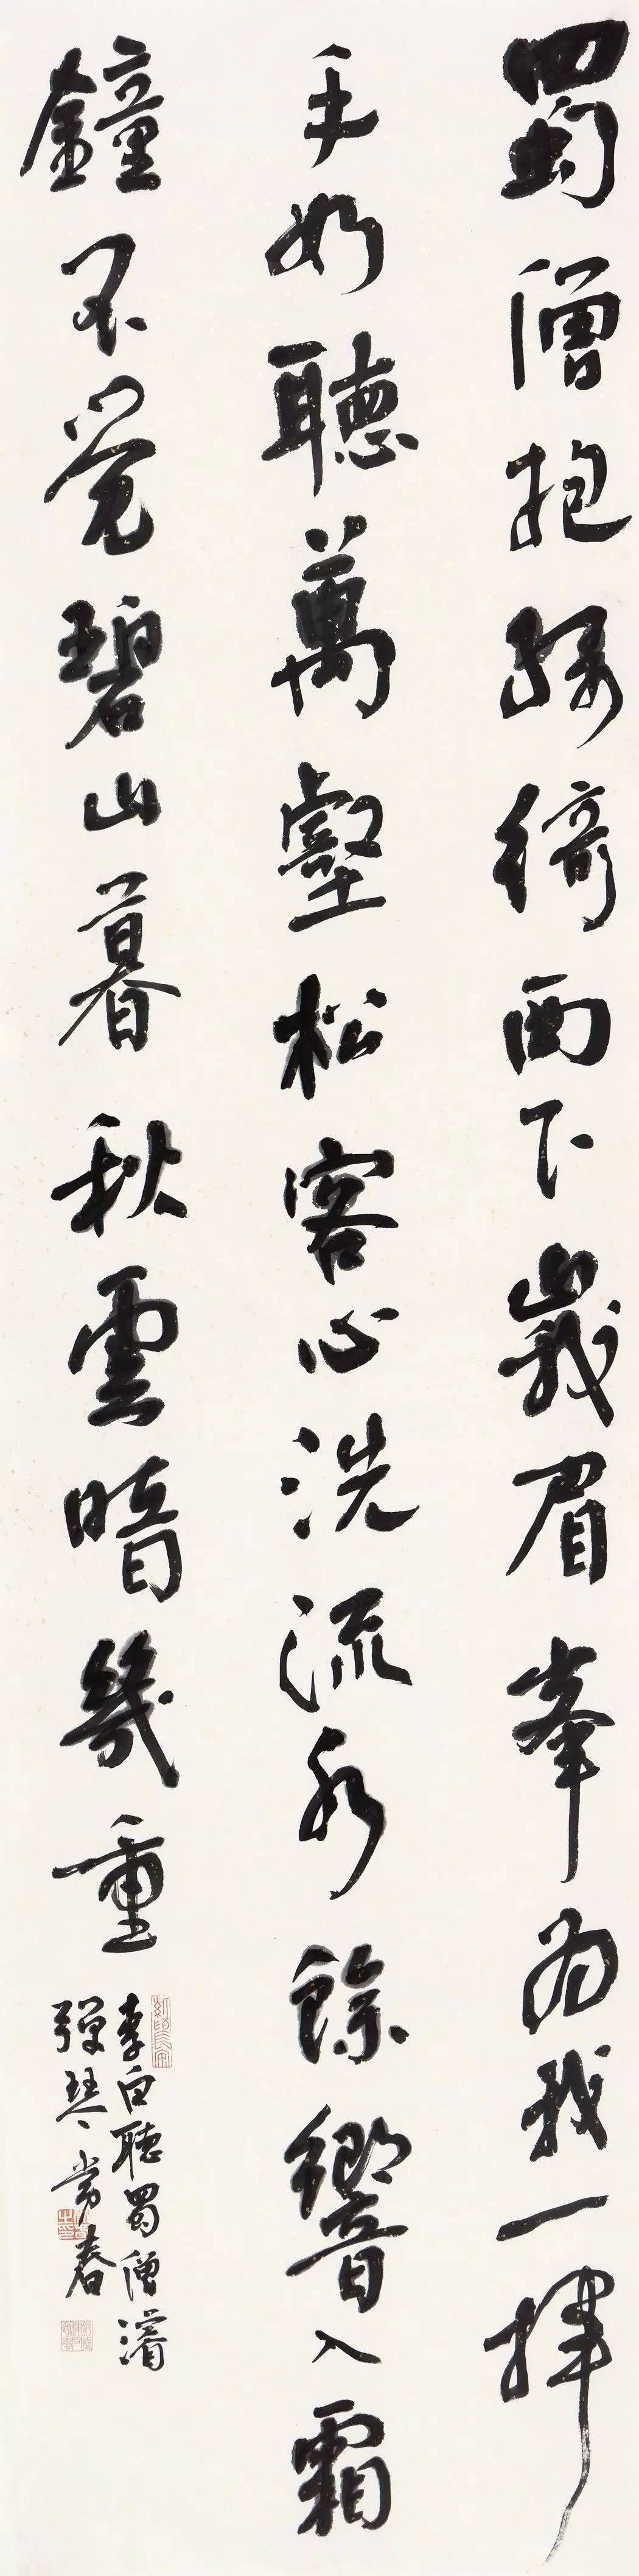 蜀僧抱綠綺西下峩眉峯為我一揮
手如聽萬壑松客心洗流水餘響入霜
鐘不覺碧山暮秋雲暗幾重
李白聽蜀僧濬
彈琴 常春